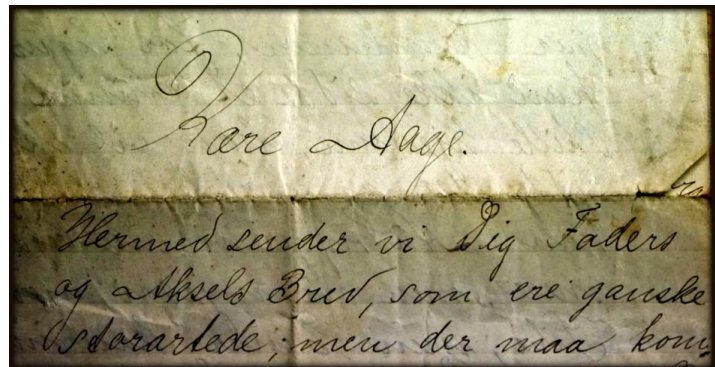 Kære Aage.
Hermed sender vi Dig Faders
og Aksels Brev, som ere ganske
storartede; men der maa kom-